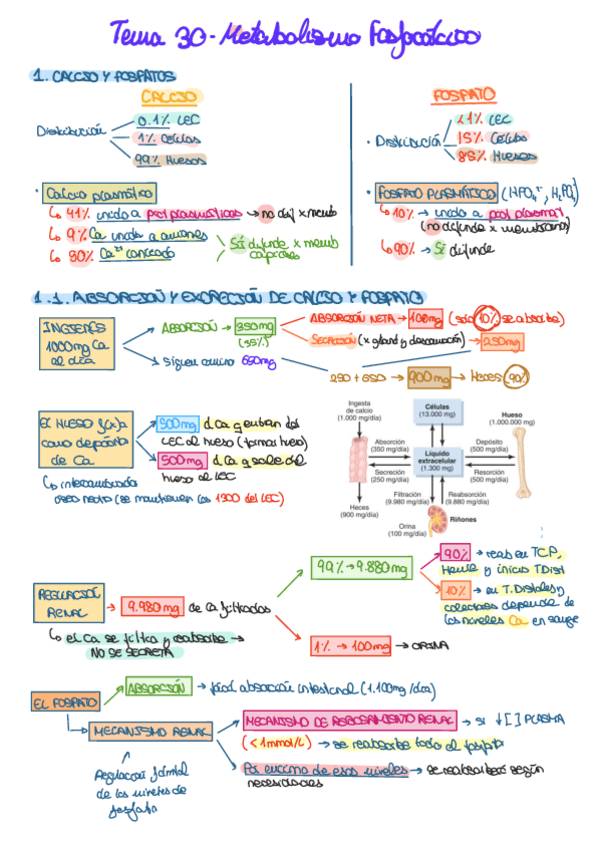 Tema 30-Metabolismo Fosfocálcico
1. CALCIO Y FOSFATOS
CALCIO
Distribución
0.1% LEC
1% Células
99% Huesos
· Calcio plasmático
↳ 41% unido a prot plasmáticas → no dif x memb
↳ 9% Ca unido a aniones
↳ 50% Ca²⁺ ionizado
Sí difunde x memb
capilares
FOSFATO
· Distribución
<1% LEC
15% Células
85% Huesos
· FOSFATO PLASMÁTICO (HPO₄²⁻, H₂PO₄⁻)
↳ 10% → unido a prot plasmat
(no difunde x membranas)
↳ 90% → Sí difunde
1.1. ABSORCIÓN Y EXCRECIÓN DE CALCIO Y FOSFATO
INGIERES
1000mg Ca
al día
ABSORCIÓN → 350mg
(35%)
Siguen camino 650mg
ABSORCIÓN NETA → 100mg (solo 10% se absorbe)
SECRECIÓN (x gland y descamación) → 250mg
250 + 650 → 900mg → Heces (90%)
EL HUESO
como depósito
de Ca
500mg d Ca q entran del
LEC al hueso (formar hueso)
500mg d Ca q sale del
hueso al LEC
↳ intercambiado
(se mantienen los 1300 del LEC)
Ingesta
de calcio
(1.000 mg/día)
Células
(13.000 mg)
Hueso
(1.000.000 mg)
Absorción
(350 mg/día)
Depósito
(500 mg/día)
Líquido
extracelular
(1.300 mg)
Secreción
(250 mg/día)
Resorción
(500 mg/día)
Filtración
(9.980 mg/día)
Reabsorción
(9.880 mg/día)
Heces
(900 mg/día)
Riñones
Orina
(100 mg/día)
REGULACIÓN
RENAL
→ 9.980mg de Ca filtrados
↳ el Ca se filtra y reabsorbe →
NO SE SECRETA
99% → 9.880mg
90% → reab en TCP,
Henle y inicio TDist
10% → en T. Distales y
colectores depende de
los niveles Ca en sangre
1% → 100mg → ORINA
EL FOSFATO
ABSORCIÓN → fácil absorción intestinal (1.100mg/día)
MECANISMO RENAL
Regulación
de los niveles de
fosfato
MECANISMO DE REBOSAMIENTO RENAL → si ↓[ ] PLASMA
(<1mmol/L) → se reabsorbe todo el fosfato
Por encima de esos niveles → se reabsorberá según
necesidades